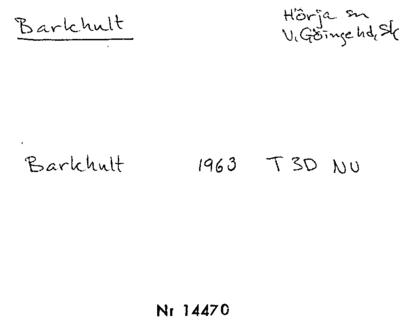 Barkhult
Hörja sn
V. Göinge hd, Sk
Barkhult 1963 T 3D NU
Nr 14470